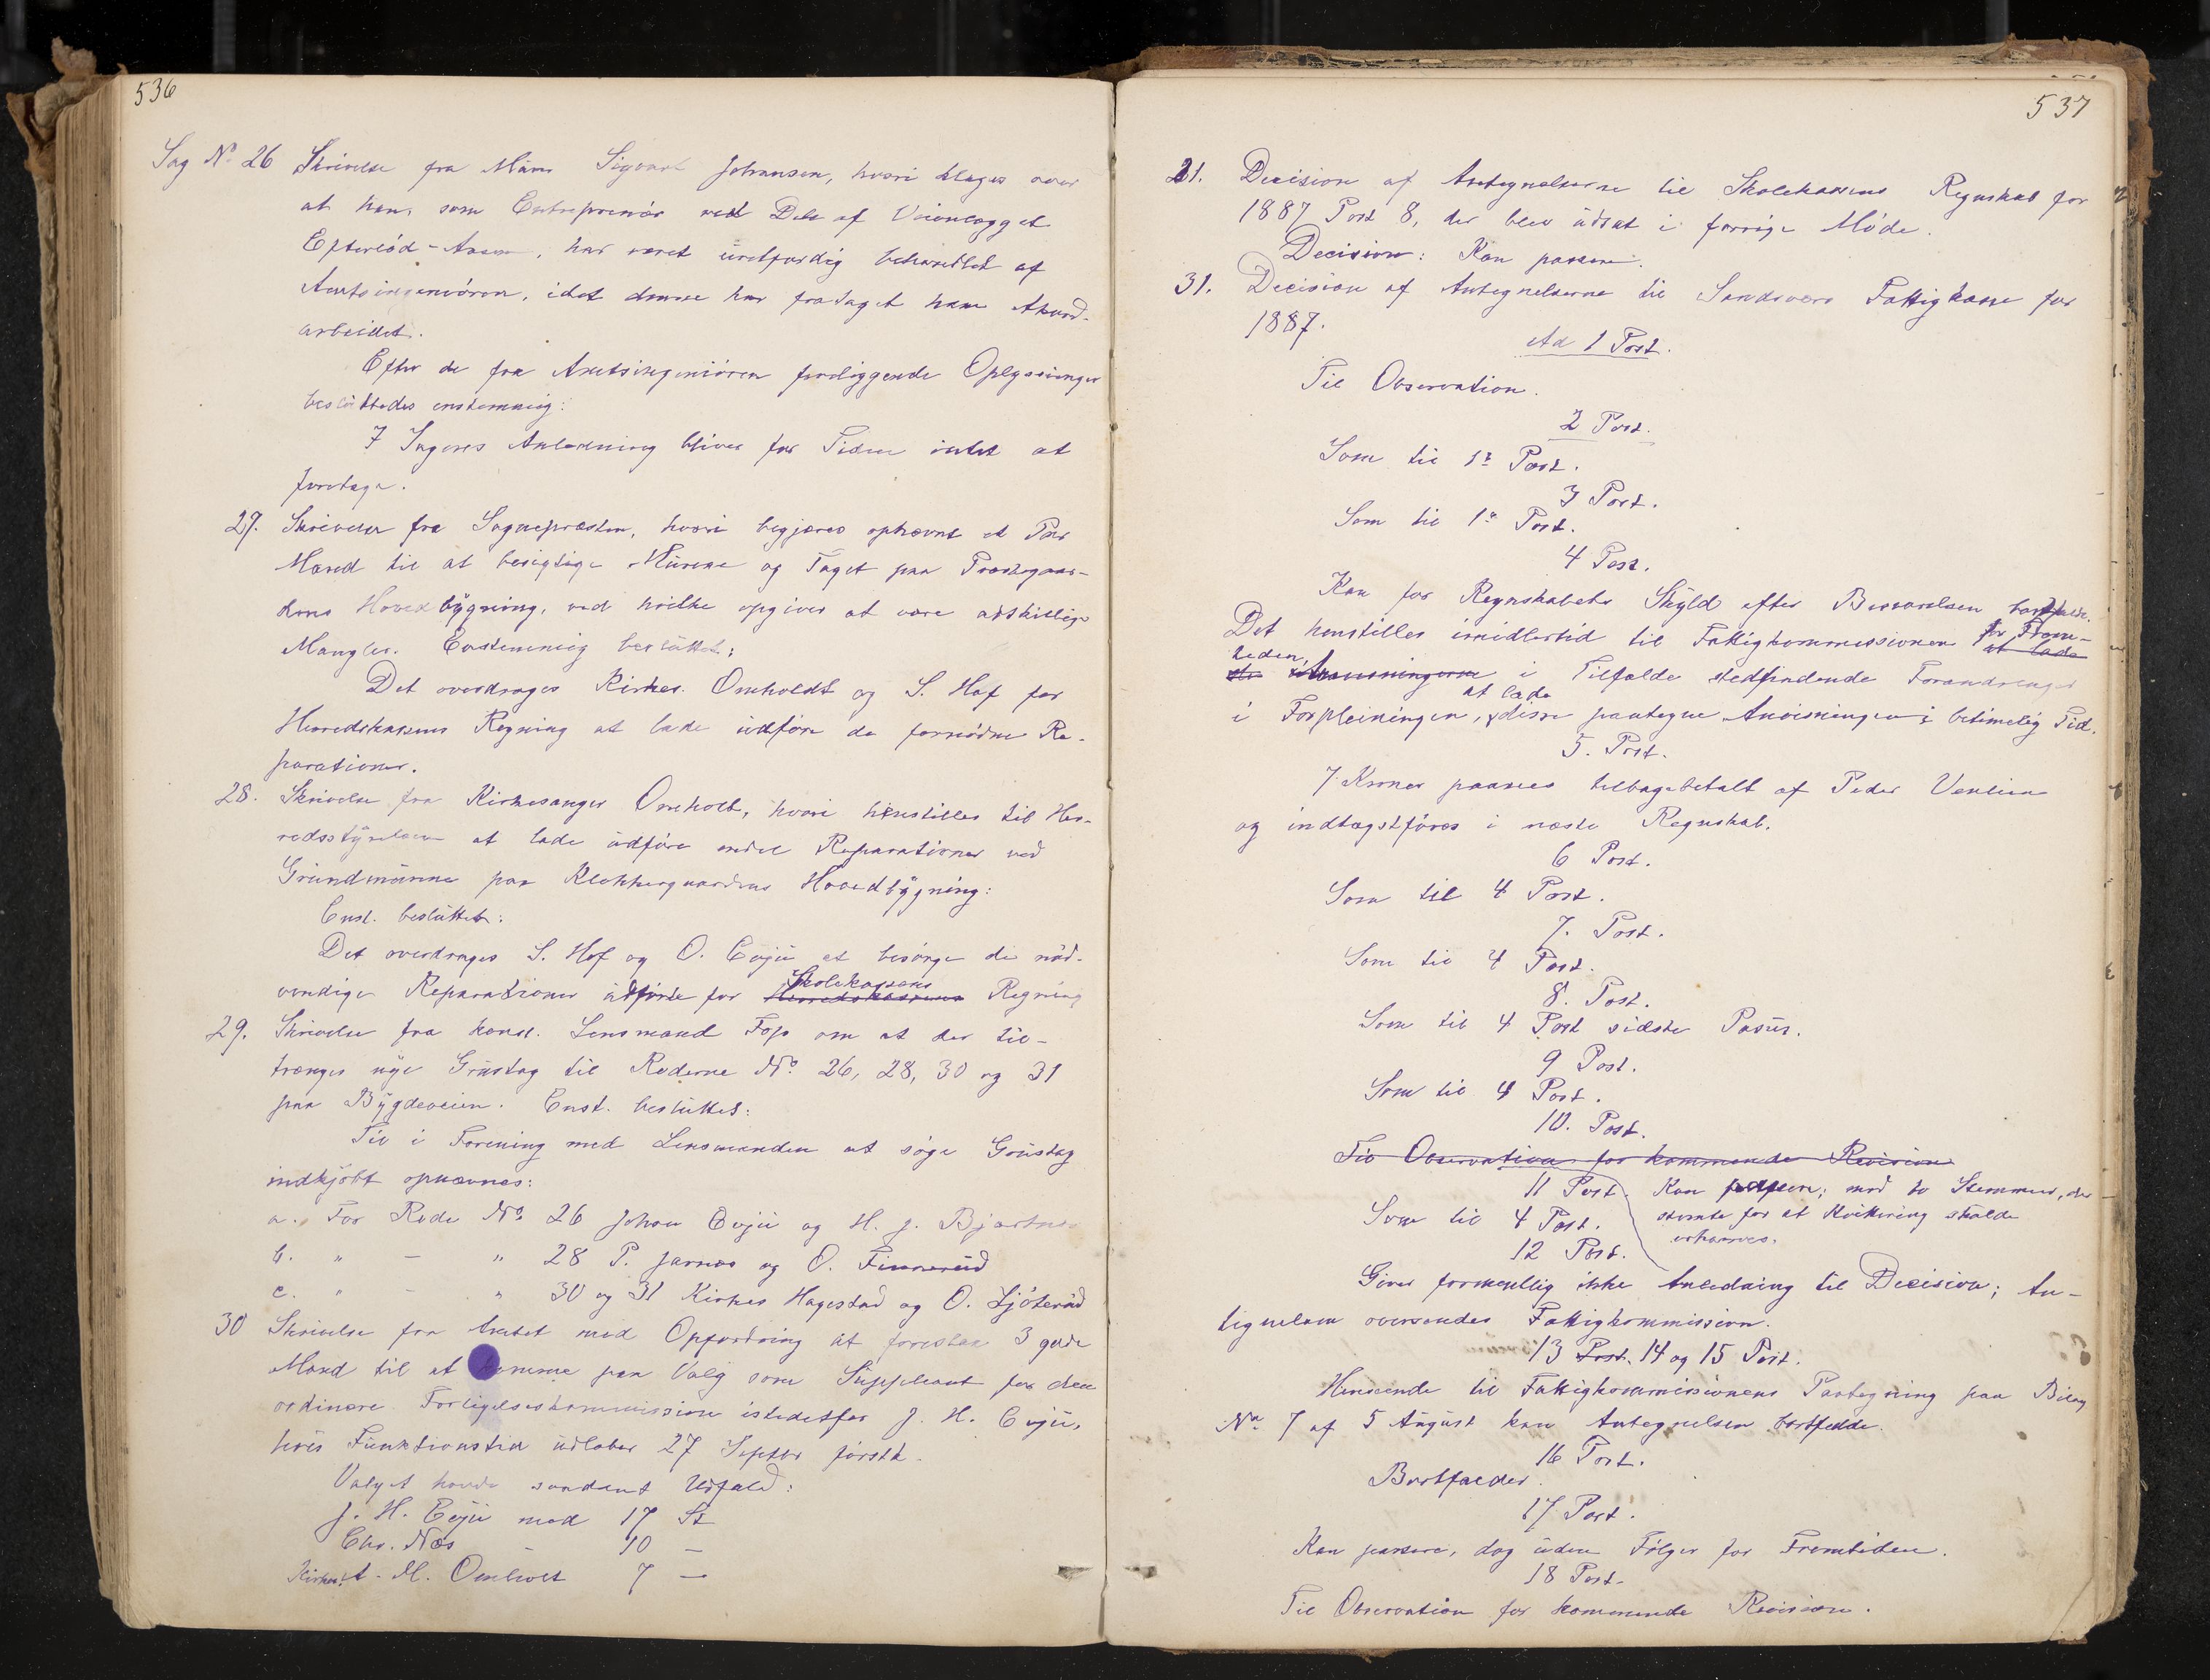 536
Sag No 26 Skrivelse fra Sigvart Johansen, hvori klages over
at han, som Entreprenör ved Dele af Veianlægget
Efterlöd - , har været üretfærdig behandlet af
Amtsingeniören, idet denne har fradaget ham Akord-
arbeidet.
Efter de fra Amtsingeniören foreliggende Oplysninger
beslüttedes enstemmig:
I Sagens Anledning bliver for Tiden intet at
foretage.
27. Skrivelse fra Sognepræsten, hvori begjæres opnævnt et Par
Mænd til at besigtige Mürene og Taget paa Præstegaar-
dens Hovedbÿgning, ved hvilke opgives at være adskillige
Mangler. Enstemmig beslüttet:
Det overdrages Kirkes. Omholdt og S. Hof for
Herredskassens Regning at lade üdföre de fornödne Re-
parationer.
28. Skrivelse fra Kirkesanger Omholt, hvori henstilles til Her-
redsstÿrelsen at lade üdföre endel Reparationer ved
Gründmürene paa Klokkergaardens Hovedbÿgning:
Enst. beslüttet:
Det overdrages S. Hof og O. Evjü at besörge de nöd-
vendige Reparationer üdförte for Skolekassens Herredskassens Regning
29. Skrivelse fra konst. Lensmand Fop om at der til-
trænges nÿe Grüstag til Roderne No. 26, 28, 30 og 31
paa Bÿgdeveien. Enst. beslüttet:
Til i Forening med Lensmanden at söge Grüstag
indkjöbt opnævnes:
a. For Rode No. 26 Johan Evjü og H. J. Bjørtnes
b. " - " 28 P. Jarnæs og O. Finnerüd
c. " - " 30 og 31 Kirkes Hagestad og O. Ljöterüd
30 Skrivelse fra Amtet med Opfordring at foreslaa 3 gode
Mænd til at komme paa Valg som Süppleant for den
ordinære Forligelseskommission istedetfor J. H. Evjü,
hvis Fünktionstid üdlöber 27 Septbr förstk.
Valget havde saadant Udfald:
J. H. Evjü med 17 St
Chr. Næs - 10 -
Kirkes. A. M. Omholt 7 -
537
21. Decision af Antegnelserne til Skolekassens Regnskab for
1887 Post 8, der blev üdsat i forrige Möde.
Decision: Kan passere.
31. Decision af Antegnelserne til Sandsvers Fattigkasse for
1887.
Ad 1 Post.
Til Observation.
2 Post.
Som til 1ste Post.
3 Post.
Som til 1ste Post.
4 Post.
Kan for Regnskabets Skÿld efter Besvarelsen bortfalde.
Det henstilles imidlertid til Fattigkommissionen for Frem- at lade
tiden, Anvisningerne i Tilfælde stedfindende Forandringer
i Forpleiningen, at lade disse paategne Anvisningen i betimelig Tid.
5. Post.
7 Kroner paasees tilbagebetalt af Peder Venlien
og indtægstföres i næste Regnskab.
6 Post.
Som til 4 Post.
7. Post.
Som til 4 Post.
8. Post.
Som til 4 Post sidste Pasüs.
9 Post.
Som til 4 Post.
10. Post.
Til Observation for kommende Revision
11 Post. Kan passere; mod to Stemmer, der
Som til 4 Post. stemte for at Kvittering skülde
12 Post. erhverves.
Giver formentlig ikke Anledning til Decision; An-
tegnelsen oversendes Fattigkommission.
13 Post. 14 og 15 Post.
Henseende til Fattigkommissionens Paategning paa Bilag
No 7 af 5 Aügüst kan Antegnelsen bortfalde.
16 Post.
Bortfalder.
17 Post.
Kan passere, dog üden Fölger for Fremtiden.
18 Post.
Til Observation for kommende Revision.